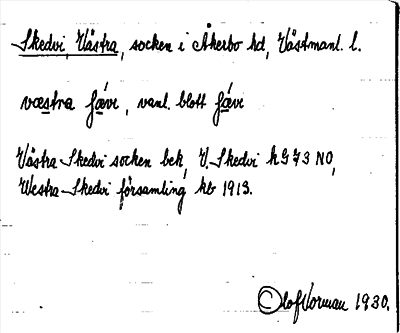 Skedvi, Västra, socken i Åkerbo hd, Västmanl. l.
væstra ʃævi, vanl. blott ʃævi
Västra Skedvi socken bek, V. Skedvi hG 73 NO,
Westra-Skedvi församling kb 1913.
Olof Vorman 1930.